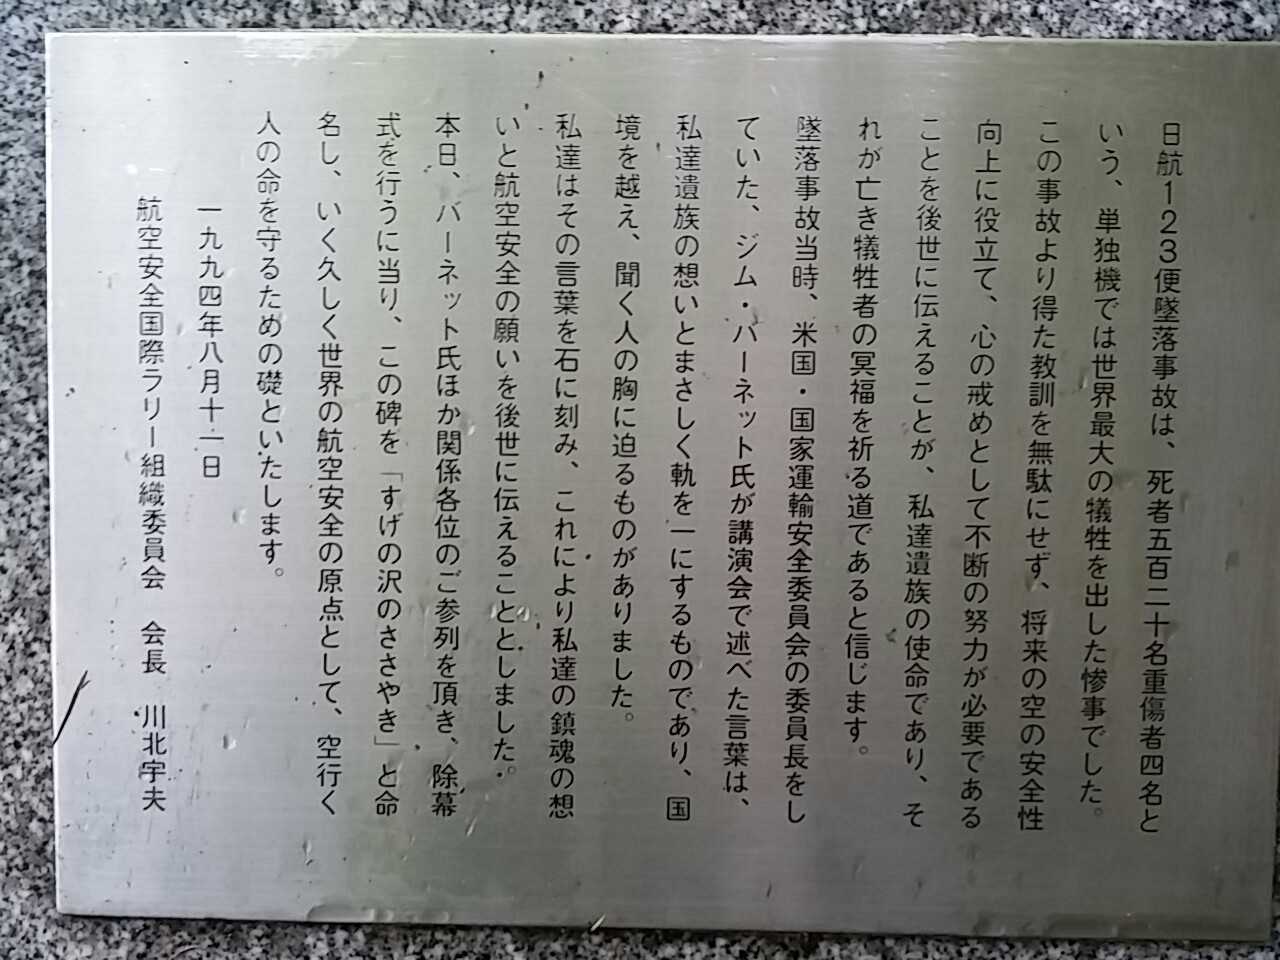 日航１２３便墜落事故は、死者五百二十名重傷者四名と
いう、単独機では世界最大の犠牲を出した惨事でした。
この事故より得た教訓を無駄にせず、将来の空の安全性
向上に役立て、心の戒めとして不断の努力が必要である
ことを後世に伝えることが、私達遺族の使命であり、そ
れが亡き犠牲者の冥福を祈る道であると信じます。
墜落事故当時、米国・国家運輸安全委員会の委員長をし
ていた、ジム・バーネット氏が講演会で述べた言葉は、
私達遺族の想いとまさしく軌を一にするものであり、国
境を越え、聞く人の胸に迫るものがありました。
私達はその言葉を石に刻み、これにより私達の鎮魂の想
いと航空安全の願いを後世に伝えることとしました。
本日、バーネット氏ほか関係各位のご参列を頂き、除幕
式を行うに当り、この碑を「すげの沢のささやき」と命
名し、いく久しく世界の航空安全の原点として、空行く
人の命を守るための礎といたします。
一九九四年八月十一日
航空安全国際ラリー組織委員会　会長　川北宇夫